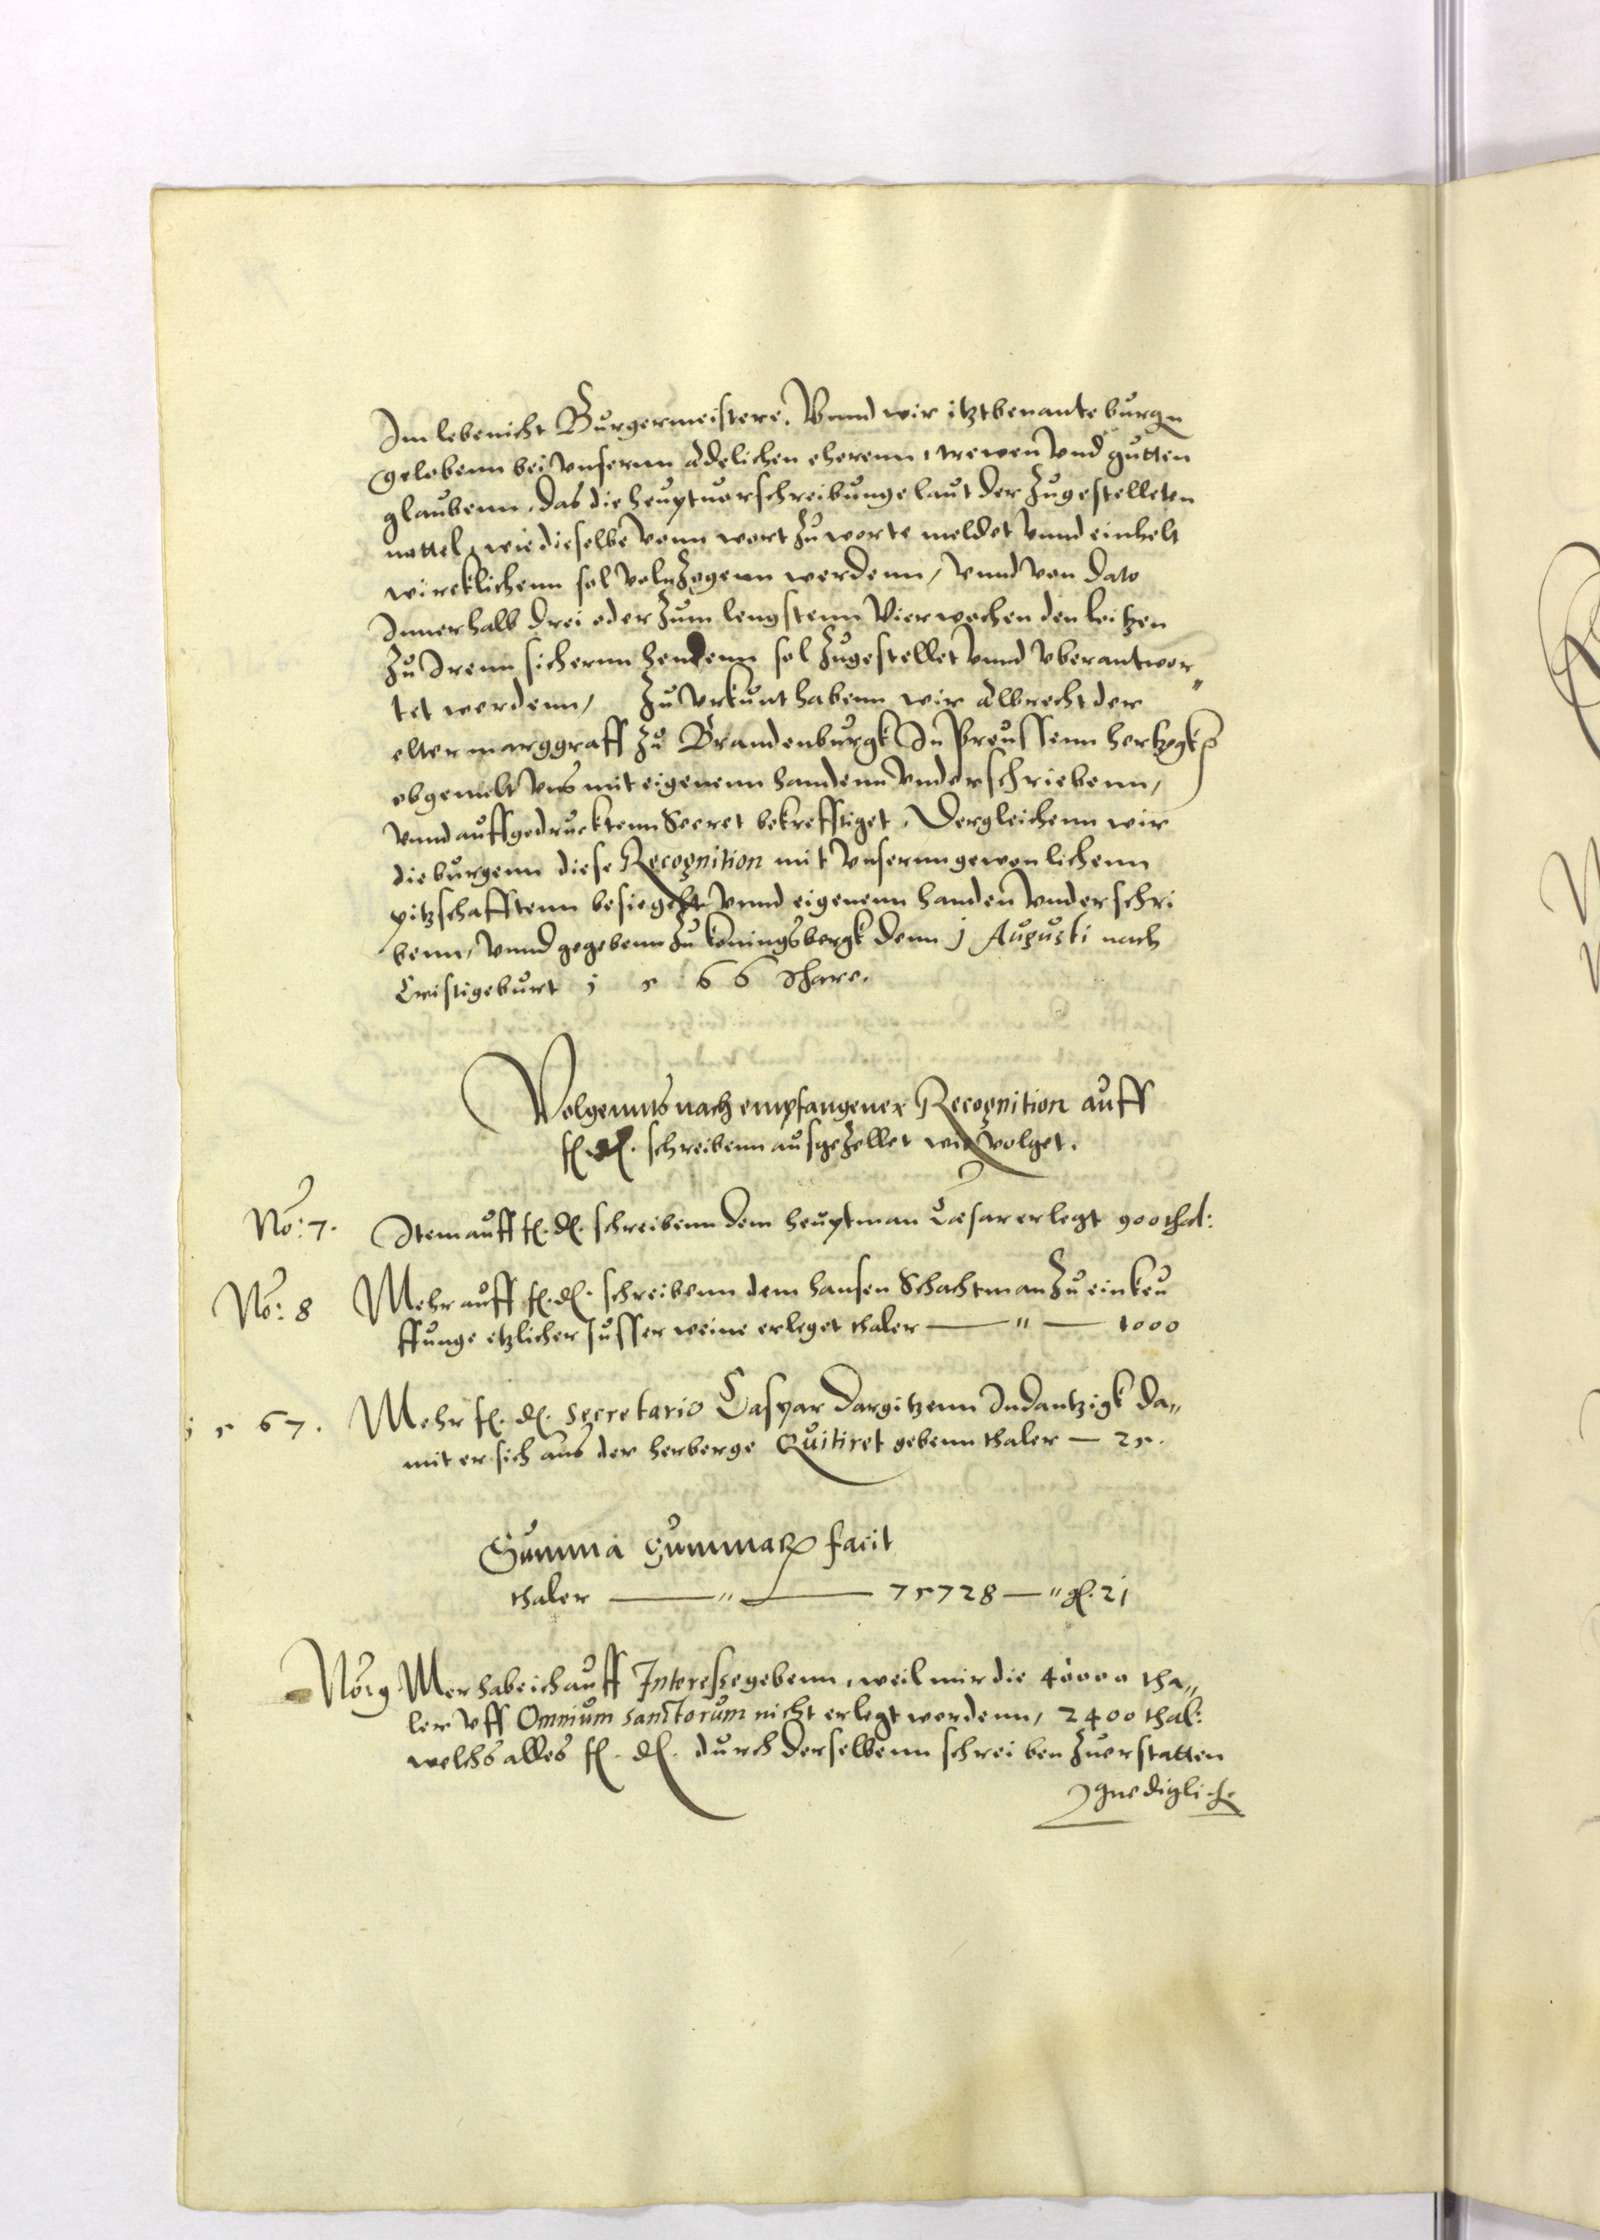 Im lebenicht Burgermeistere. Vnnd wir itztbenante burgn
gelobenn bei vnsernn Adelichen eherenn, trewen vnd gutten
glaubenn, das die heuptuorschreibunge laut der zugestelleten
nottel, wie dieselbe vonn wort zu worte meldet vnnd einhelt
wircklichenn sol volnzogenn werdenn, vnnd von dato
Innerhalb drei oder zum lengstenn vier wochen den leitzen
zu Irenn sichernn hendenn sol zugestellet vnnd vberantwor„
tet werdenn, Zu vrkunt habenn wir Albrecht der
elter marggraff zu Brandenburgk In Preussenn hertzogk
obgemelt vns mit eigenenn handenn vnderschriebenn,
vnnd auffgedrucktenn Secret bekrefftiget. Dergleichenn wir
die burgenn diese Recognition mit vnsernn gewonlichenn
pitzschafftenn besiegelt vnnd eigenenn handen vnderschri
benn, vnnd gegebenn zu konningsbergk denn j Augusti nach
Cristi geburt j 5 6 6 Jhare.
Volgennts nach empfangener Recognition auff
f. d. schreibenn ausgezellet wie volget.
No: 7. Item auff f. d. schreibenn dem heuptman Cæsar erlegt 900 thal:
No: 8 Mehr auff f. d. schreibenn dem hansen Schachtman zu einkeu
ffunge etzlicher susser weine erleget thaler — „ — 1000
j 5 67. Mehr f. d. Secretario Caspar Dargitzenn In dantzigk da„
mit er sich aus der herberge Quitiret gebenn thaler — 25.
Summa Summarum facit
thaler — „ — 75728 — „ gl. 21
No: 9 Mer habe ich auff Interesse gebenn, weil mir die 40000 tha„
ler vff Omnium Sanctorum nicht erlegt wordenn, 2400 thal:
welchs alles f. d. durch derselbenn schreiben zuerstatten
gnediglich